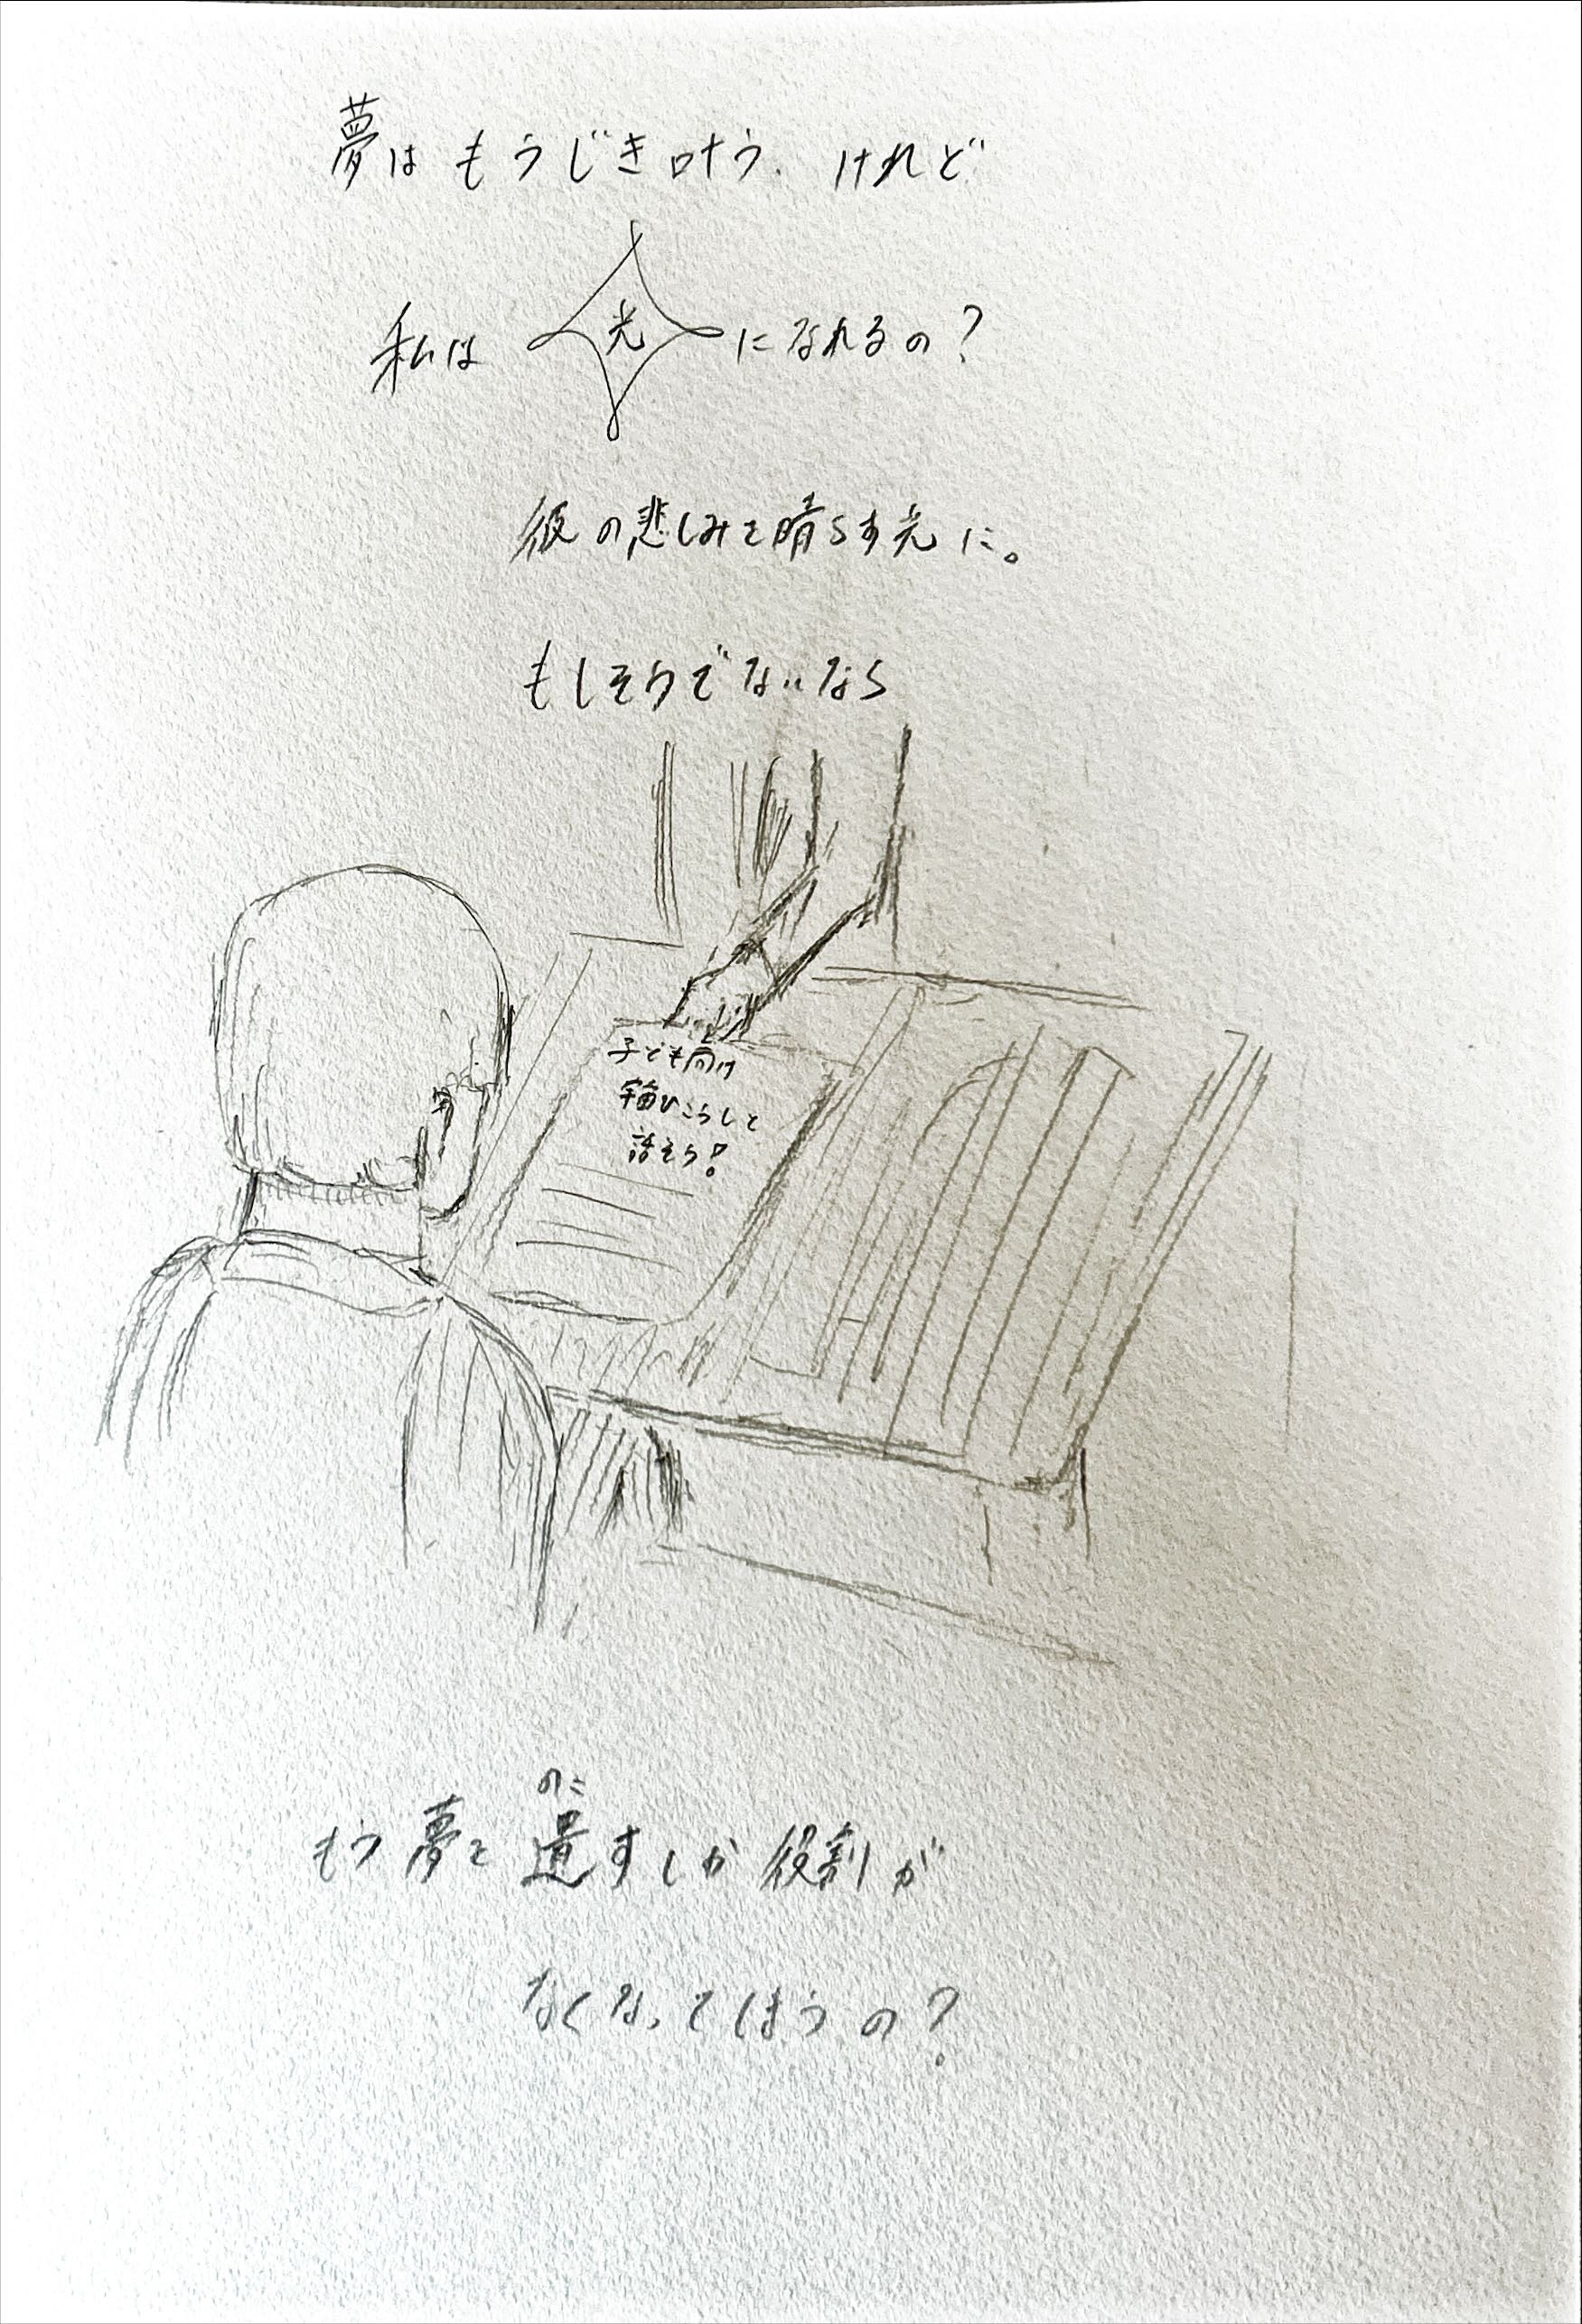 夢はもうじき叶う. けれど
私は光になれるの?
彼の悲しみを晴らす光に。
もしそうでないなら
子ども向け
宇宙ひこうしと
話そう!
のこ
もう夢を遺すしか役割が
なくなってしまうの?